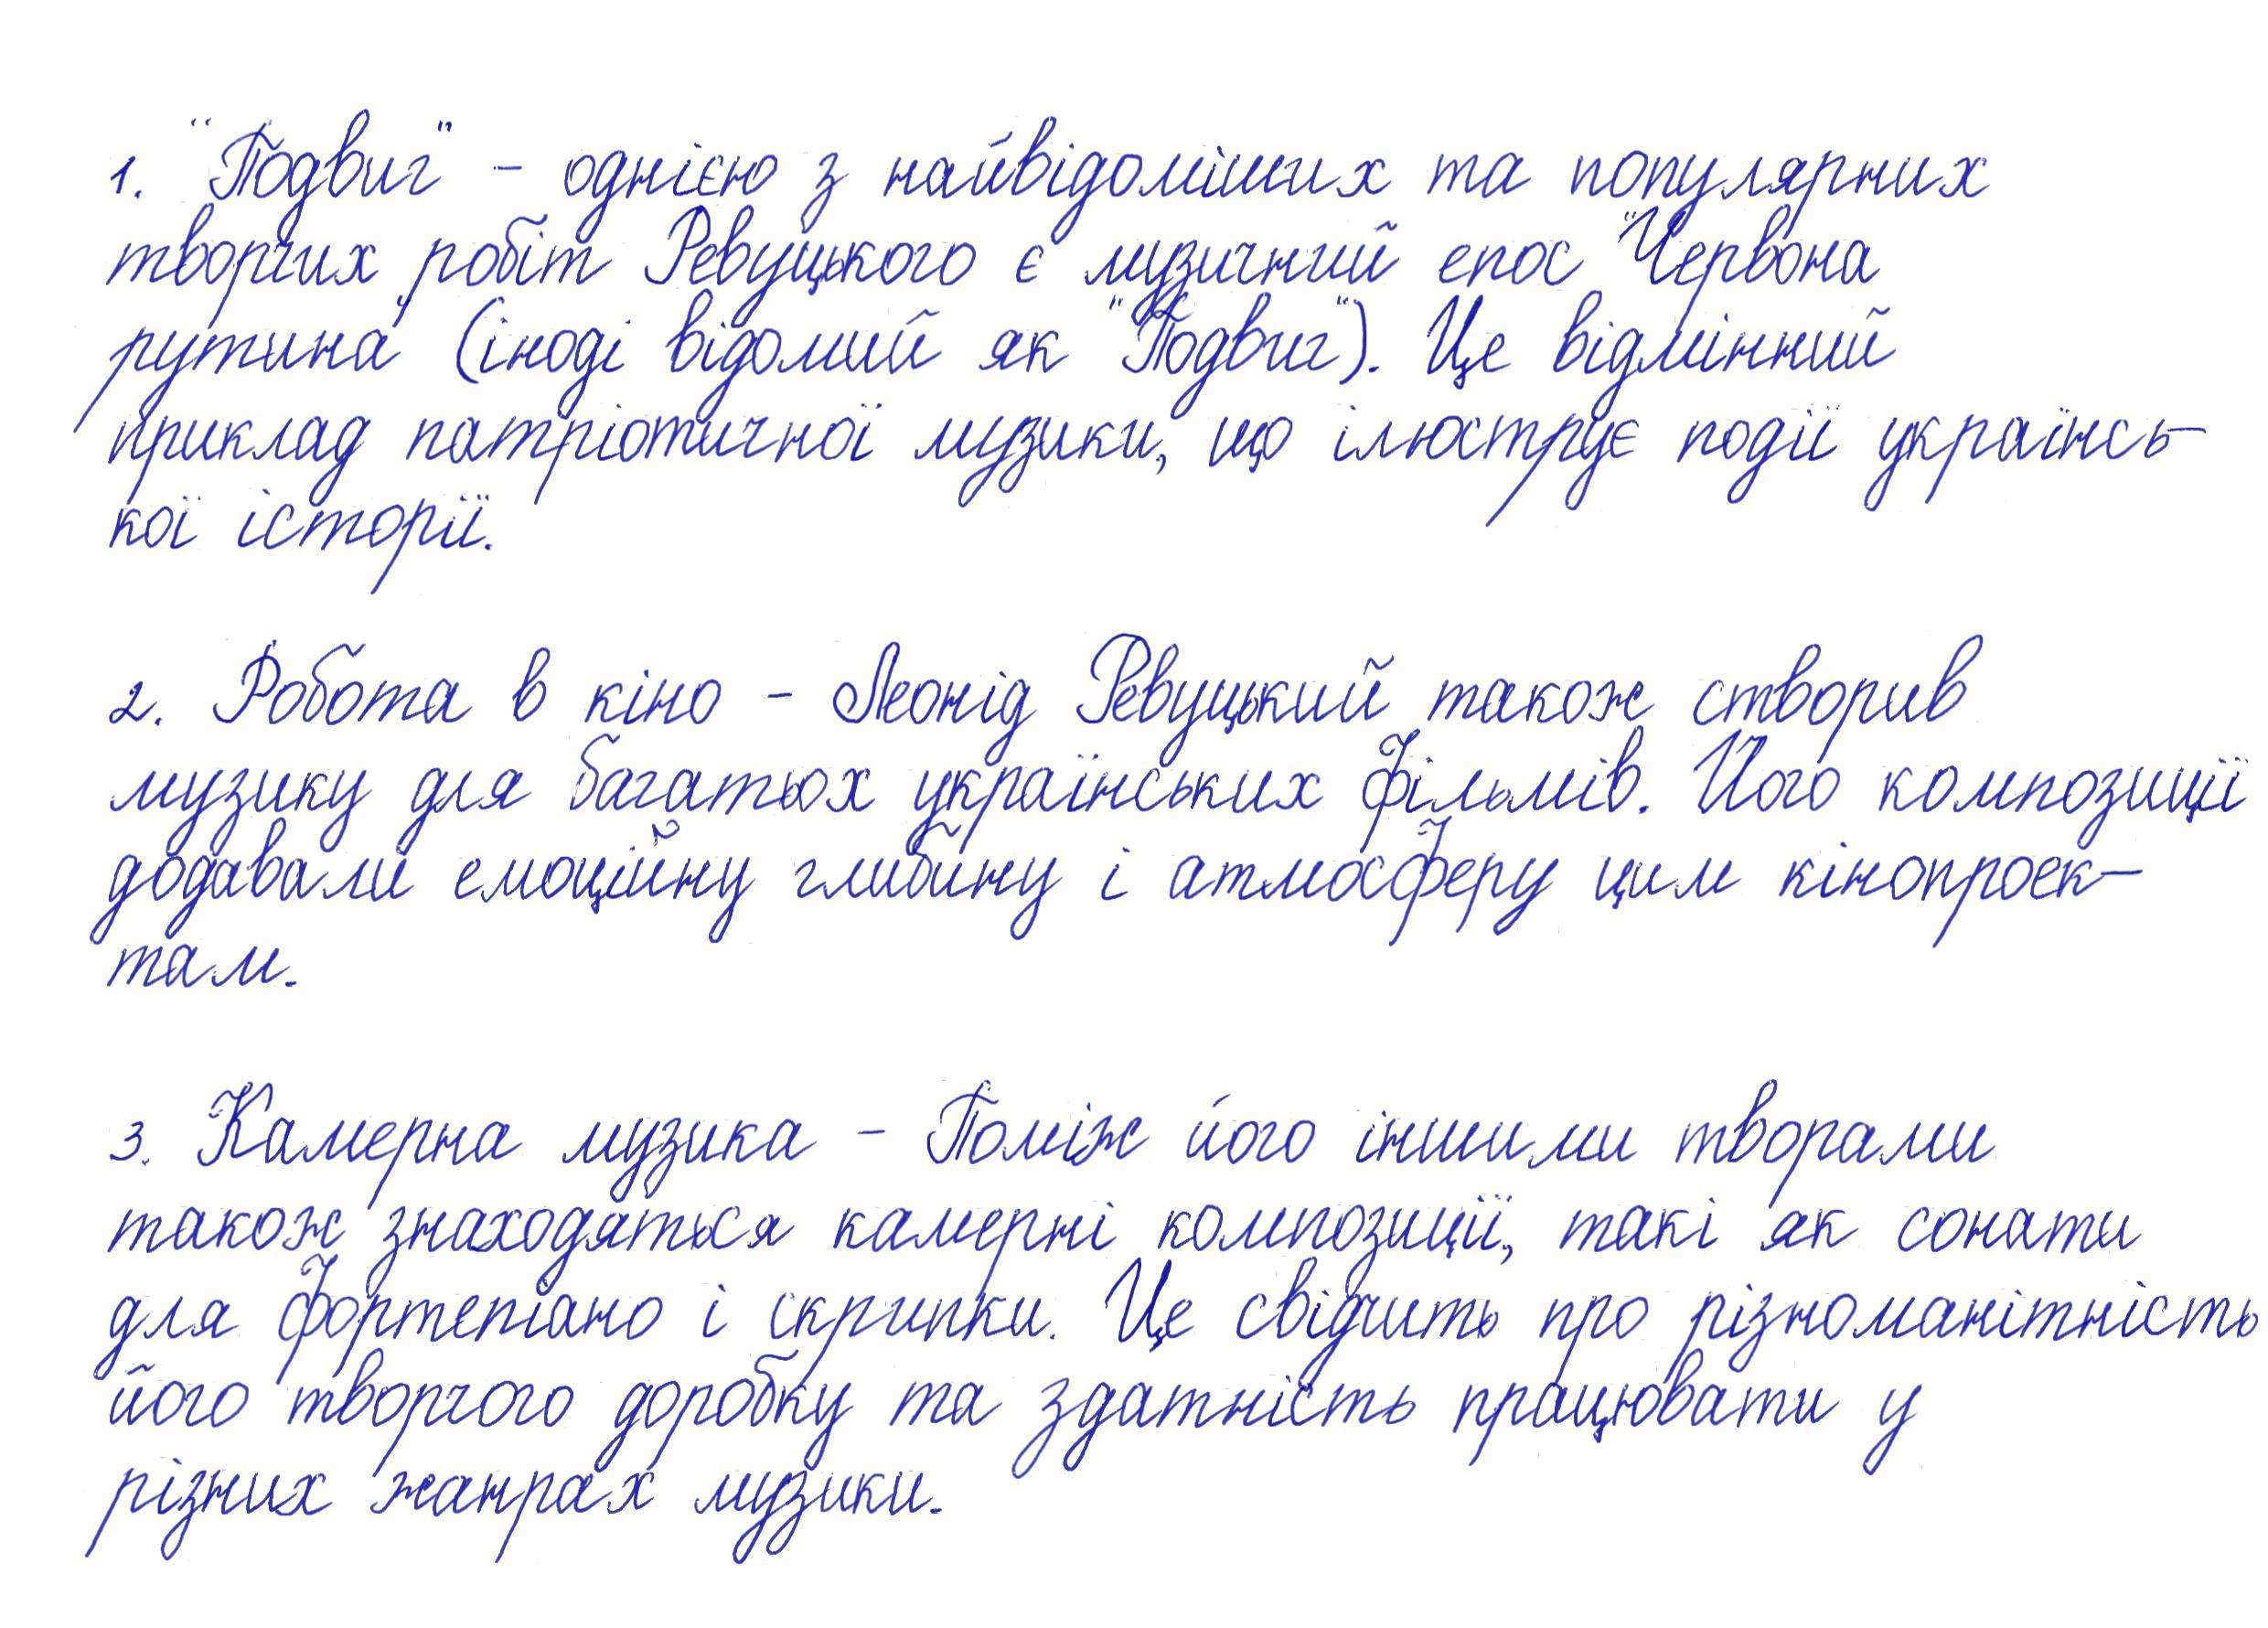 1. "Подвиг" - однією з найвідоміших та популярних
творчих робіт Ревуцького є музичний епос "Червона
рутина" (іноді відомий як "Подвиг"). Це відмінний
приклад патріотичної музики, що ілюструє події українсь-
кої історії.
2. Робота в кіно - Леонід Ревуцький також створив
музику для багатьох українських фільмів. Його композиції
додавали емоційну глибину і атмосферу цим кінопроек-
там.
3. Камерна музика - Поміж його іншими творами
також знаходяться камерні композиції, такі як сонати
для фортепіано і скрипки. Це свідчить про різноманітність
його творчого доробку та здатність працювати у
різних жанрах музики.